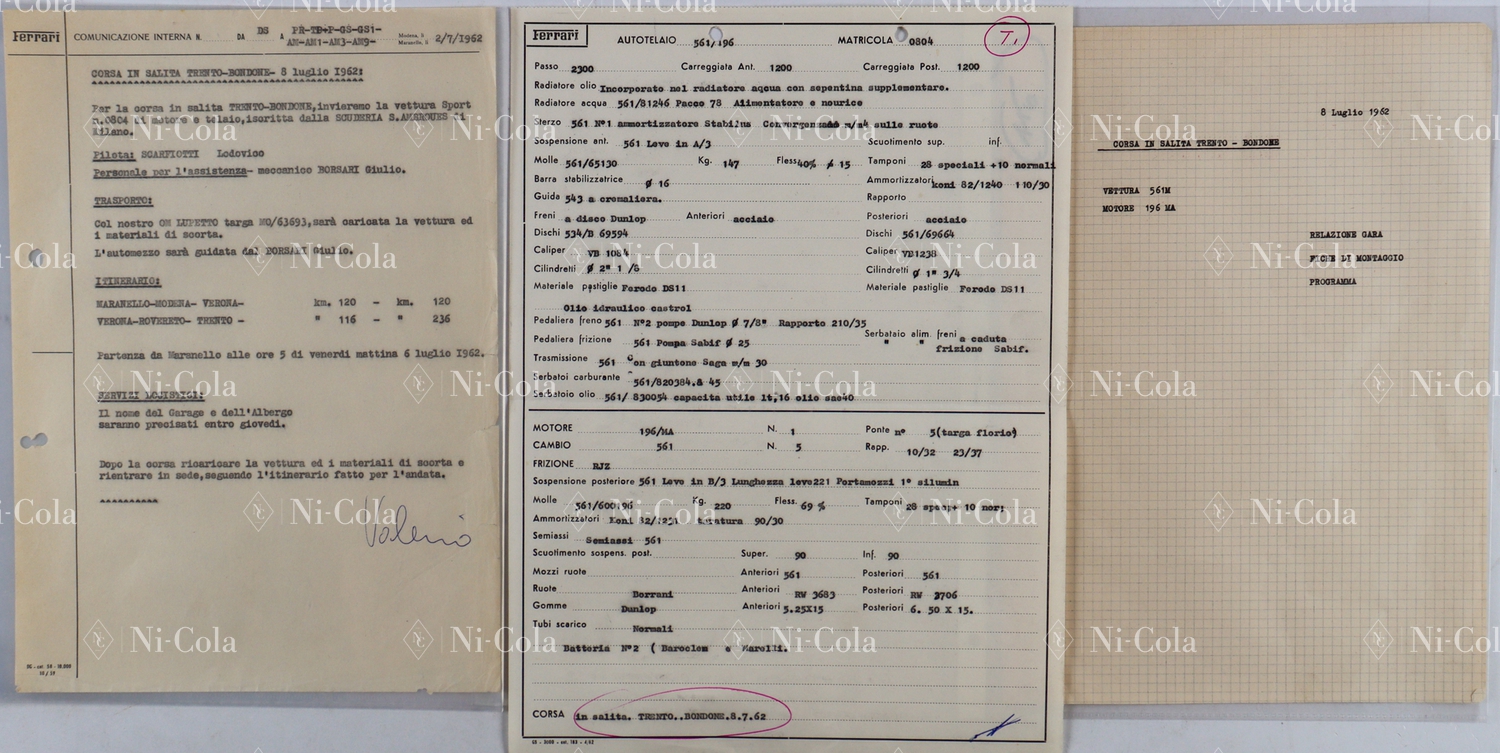 Ferrari COMUNICAZIONE INTERNA N. DA DS A PR-TB+P-GS-GS1-
AM-AM1-AM3-AM9- Modena, li Maranello, li 2/7/1962
CORSA IN SALITA TRENTO-BONDONE- 8 luglio 1962:
Per la corsa in salita TRENTO-BONDONE, invieremo la vettura Sport
n.0804 di motore e telaio, iscritta dalla SCUDERIA S.AMBROEUS di
Milano.
Pilota: SCARFIOTTI Lodovico
Personale per l'assistenza- meccanico BORSARI Giulio.
TRASPORTO:
Col nostro OM LUPETTO targa MO/63693, sarà caricata la vettura ed
i materiali di scorta.
L'automezzo sarà guidata dal BORSARI Giulio.
ITINERARIO:
MARANELLO-MODENA- VERONA- km. 120 - km. 120
VERONA-ROVERETO- TRENTO - " 116 - " 236
Partenza da Maranello alle ore 5 di venerdi mattina 6 luglio 1962.
SERVIZI LOGISTICI:
Il nome del Garage e dell'Albergo
saranno precisati entro giovedi.
Dopo la corsa ricaricare la vettura ed i materiali di scorta e
rientrare in sede, seguendo l'itinerario fatto per l'andata.
Valerio
Ferrari AUTOTELAIO 561/196 MATRICOLA 0804 T,
Passo 2300 Carreggiata Ant. 1200 Carreggiata Post. 1200
Radiatore olio Incorporato nel radiatore aqcua con sepentina supplementare.
Radiatore acqua 561/81246 Pacco 78 Alimentatore e nourice
Sterzo 561 N°1 ammortizzatore Stabilus Convergenza m/m4 sulle ruote
Sospensione ant. 561 Leve in A/3 Scuotimento sup. inf.
Molle 561/65130 Kg. 147 Fless. 40% ø 15 Tamponi 28 speciali +10 normali
Barra stabilizzatrice ø 16 Ammortizzatori koni 82/1240 110/30
Guida 543 a cremaliera. Rapporto
Freni a disco Dunlop Anteriori acciaio Posteriori acciaio
Dischi 534/B 69594 Dischi 561/69664
Caliper VB 1084 Caliper VB1238
Cilindretti ø 2" 1 /8 Cilindretti ø 1" 3/4
Materiale pastiglie Ferodo DS11 Materiale pastiglie Ferodo DS11
Olio idraulico castrol
Pedaliera freno 561 N°2 pompe Dunlop ø 7/8" Rapporto 210/35
Pedaliera frizione 561 Pompa Sabif ø 25 Serbatoio alim. freni a caduta
" " frizione Sabif.
Trasmissione 561 Con giuntone Saga m/m 30
Serbatoi carburante 561/820384.& 45
Serbatoio olio 561/ 830054 capacita utile lt,16 olio sae40
MOTORE 196/MA N. 1 Ponte n° 5(targa florio)
CAMBIO 561 N. 5 Rapp. 10/32 23/37
FRIZIONE RJZ
Sospensione posteriore 561 Leve in B/3 Lunghezza leve221 Portamozzi 1° silumin
Molle 561/600196 Kg. 220 Fless. 69 % Tamponi 28 spec;+ 10 nor;
Ammortizzatori Koni 82/1231 taratura 90/30
Semiassi Semiassi 561
Scuotimento sospens. post. Super. 90 Inf. 90
Mozzi ruote Anteriori 561 Posteriori 561
Ruote Borrani Anteriori RW 3683 Posteriori RW 3706
Gomme Dunlop Anteriori 5.25X15 Posteriori 6. 50 X 15.
Tubi scarico Normali
Batteria N°2 ( Baroclem e Marelli.
CORSA in salita. TRENTO..BONDONE.8.7.62
8 Luglio 1962
CORSA IN SALITA TRENTO - BONDONE
VETTURA 561M
MOTORE 196 MA
RELAZIONE GARA
FICHE DI MONTAGGIO
PROGRAMMA
Ni-Cola